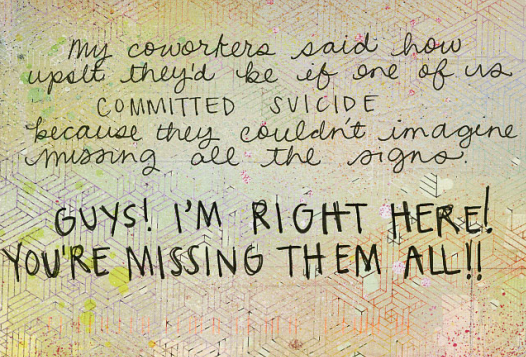 my coworkers said how
upset they'd be if one of us
COMMITTED SUICIDE
because they couldn't imagine
missing all the signs.
GUYS! I'M RIGHT HERE!
YOU'RE MISSING THEM ALL!!